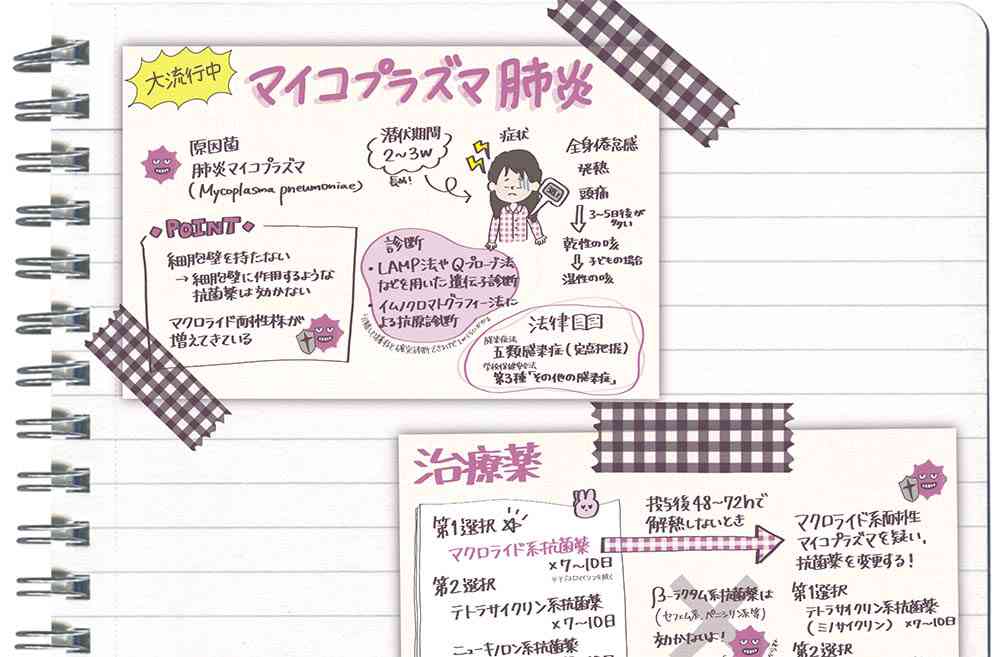 大流行中
マイコプラズマ肺炎
原因菌
肺炎マイコプラズマ
(Mycoplasma pneumoniae)
潜伏期間
2〜3w
長め!
症状
全身倦怠感
発熱
頭痛
3〜5日後が
多い
乾性の咳
子どもの場合
湿性の咳
POINT
細胞壁を持たない
→細胞壁に作用するような
抗菌薬は効かない
マクロライド耐性株が
増えてきている
診断
・LAMP法やQプローブ法
などを用いた遺伝子診断
・イムノクロマトグラフィー法に
よる抗原診断
法律
感染症法
五類感染症(定点把握)
学校保健安全法
第3種「その他の感染症」
治療薬
第1選択
マクロライド系抗菌薬
×7〜10日
第2選択
テトラサイクリン系抗菌薬
×7〜10日
ニューキノロン系抗菌薬
投与後48〜72hで
解熱しないとき
マクロライド系耐性
マイコプラズマを疑い、
抗菌薬を変更する!
β-ラクタム系抗菌薬は
(セフェム系、ペニシリン系等)
効かないよ!
第1選択
テトラサイクリン系抗菌薬
(ミノサイクリン) ×7〜10日
第2選択